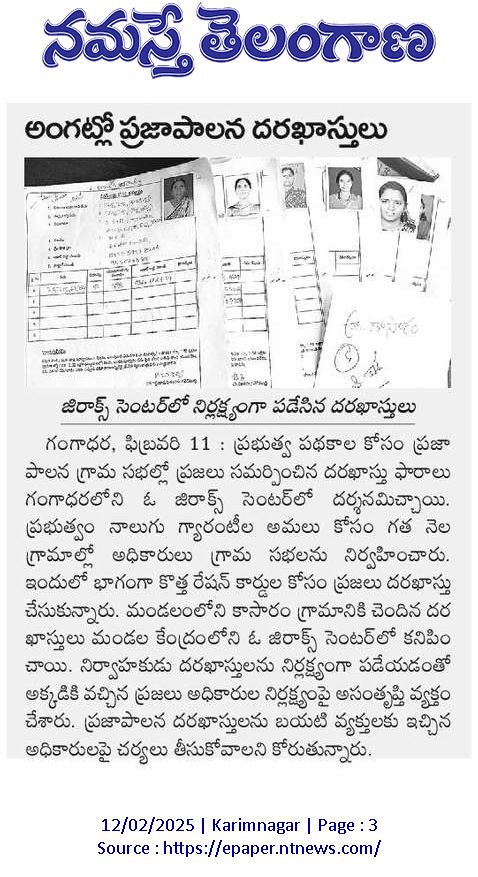 నమస్తే తెలంగాణ
అంగట్లో ప్రజాపాలన దరఖాస్తులు
గ్రా. కాసారం
జిరాక్స్ సెంటర్‌లో నిర్లక్ష్యంగా పడేసిన దరఖాస్తులు
గంగాధర, ఫిబ్రవరి 11 : ప్రభుత్వ పథకాల కోసం ప్రజా
పాలన గ్రామ సభల్లో ప్రజలు సమర్పించిన దరఖాస్తు ఫారాలు
గంగాధరలోని ఓ జిరాక్స్ సెంటర్‌లో దర్శనమిచ్చాయి.
ప్రభుత్వం నాలుగు గ్యారంటీల అమలు కోసం గత నెల
గ్రామాల్లో అధికారులు గ్రామ సభలను నిర్వహించారు.
ఇందులో భాగంగా కొత్త రేషన్ కార్డుల కోసం ప్రజలు దరఖాస్తు
చేసుకున్నారు. మండలంలోని కాసారం గ్రామానికి చెందిన దర
ఖాస్తులు మండల కేంద్రంలోని ఓ జిరాక్స్ సెంటర్‌లో కనిపిం
చాయి. నిర్వాహకుడు దరఖాస్తులను నిర్లక్ష్యంగా పడేయడంతో
అక్కడికి వచ్చిన ప్రజలు అధికారుల నిర్లక్ష్యంపై అసంతృప్తి వ్యక్తం
చేశారు. ప్రజాపాలన దరఖాస్తులను బయటి వ్యక్తులకు ఇచ్చిన
అధికారులపై చర్యలు తీసుకోవాలని కోరుతున్నారు.
12/02/2025 | Karimnagar | Page : 3
Source : https://epaper.ntnews.com/